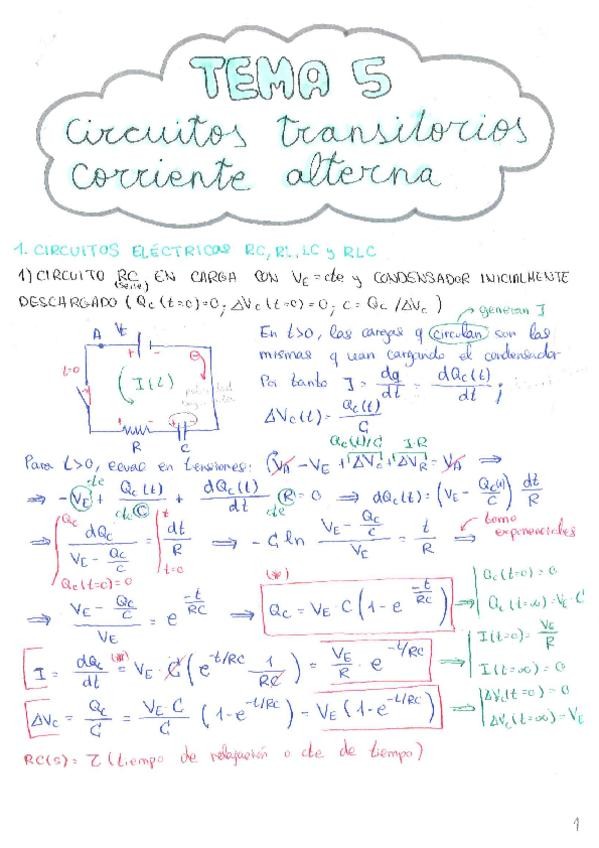 TEMA 5
Circuitos transitorios
Corriente alterna
1. CIRCUITOS ELÉCTRICOS RC, RL, LC y RLC
1) CIRCUITO RC (serie) EN CARGA CON VE = cte y CONDENSADOR INICIALMENTE
DESCARGADO (Qc(t=0)=0; ΔVc(t=0)=0; C = Qc/ΔVc)
generan I
En t>0, las cargas q circulan son las
mismas q van cargando el condensador
Por tanto I = dq/dt = dQc(t)/dt ;
ΔVc(t) = Qc(t)/C
A
t=0
I(t)
R C
Qc(t)/C I·R
Para t>0, ecuac en tensiones: VA - VE + ΔVc + ΔVR = VA ⇒
⇒ -VE + Qc(t)/C + dQc(t)/dt R = 0 ⇒ dQc(t) = (VE - Qc(t)/C) dt/R
cte cte cte
⇒ ∫Qc(t=0)=0^Qc dQc/(VE - Qc/C) = ∫t=0^t dt/R ⇒ -C ln (VE - Qc/C)/VE = t/R ⇒ tomo exponenciales
⇒ (VE - Qc/C)/VE = e^(-t/RC) ⇒ (*) Qc = VE·C (1 - e^(-t/RC)) ⇒ Qc(t=0) = 0
Qc(t=∞) = VE·C
I = dQc/dt (*)= VE·C (e^(-t/RC) 1/RC) = VE/R · e^(-t/RC) ⇒ I(t=0) = VE/R
I(t=∞) = 0
ΔVc = Qc/C = VE·C/C (1 - e^(-t/RC)) = VE (1 - e^(-t/RC)) ⇒ ΔVc(t=0) = 0
ΔVc(t=∞) = VE
RC(s) = τ (tiempo de relajación o cte de tiempo)
1